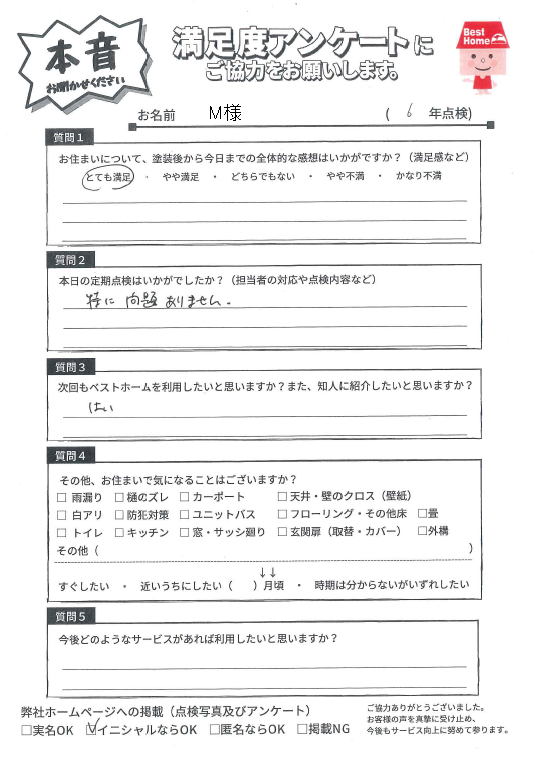 本音
お聞かせください
満足度アンケートに
ご協力をお願いします。
Best Home
お名前 M様 ( 6 年点検)
質問1
お住まいについて、塗装後から今日までの全体的な感想はいかがですか?(満足感など)
とても満足 ・ やや満足 ・ どちらでもない ・ やや不満 ・ かなり不満
質問2
本日の定期点検はいかがでしたか?(担当者の対応や点検内容など)
特に問題ありません。
質問3
次回もベストホームを利用したいと思いますか?また、知人に紹介したいと思いますか?
はい
質問4
その他、お住まいで気になることはございますか?
□ 雨漏り □ 樋のズレ □ カーポート □ 天井・壁のクロス(壁紙)
□ 白アリ □ 防犯対策 □ ユニットバス □ フローリング・その他床 □畳
□ トイレ □ キッチン □ 窓・サッシ廻り □ 玄関扉(取替・カバー) □外構
その他( )
↓↓
すぐしたい ・ 近いうちにしたい( )月頃 ・ 時期は分からないがいずれしたい
質問5
今後どのようなサービスがあれば利用したいと思いますか?
弊社ホームページへの掲載(点検写真及びアンケート)
□実名OK ☑イニシャルならOK □匿名ならOK □掲載NG
ご協力ありがとうございました。
お客様の声を真摯に受け止め、
今後もサービス向上に努めて参ります。